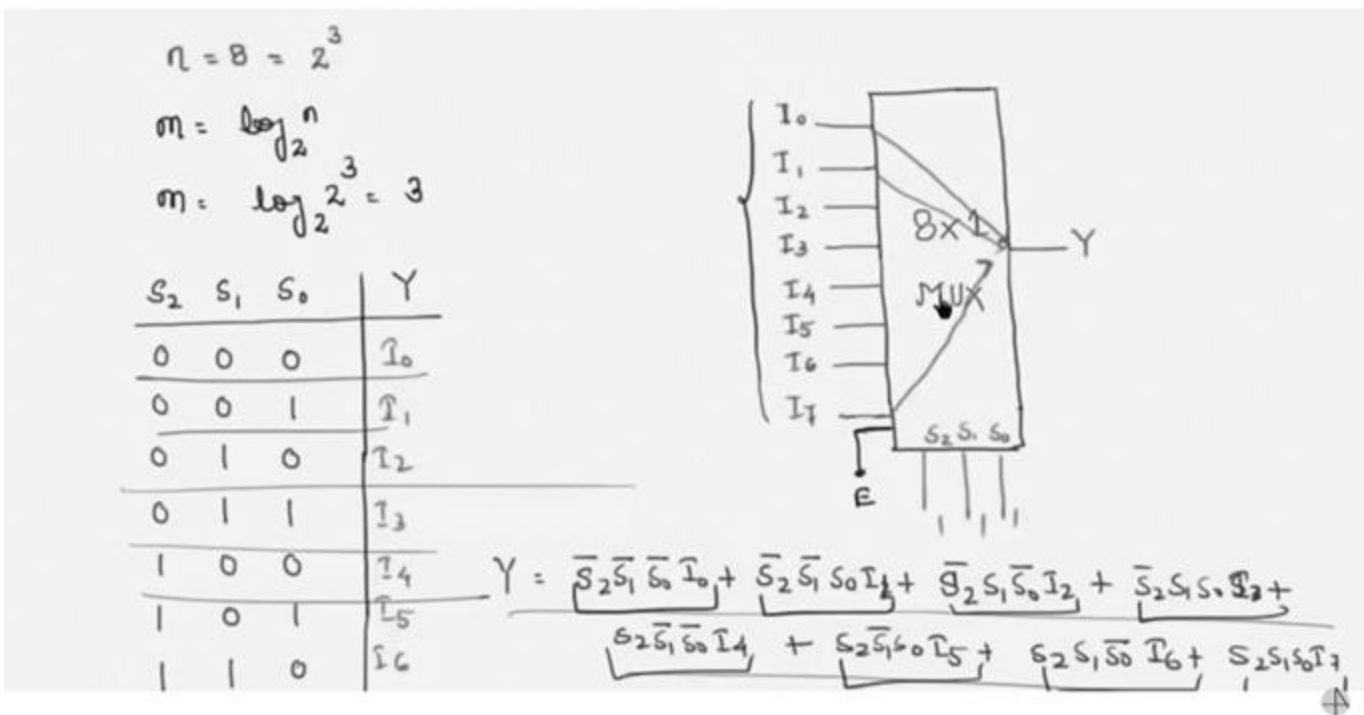 n = 8 = 2³
m = log₂ n
m = log₂ 2³ = 3
S₂ S₁ S₀ Y
0 0 0 I₀
0 0 1 I₁
0 1 0 I₂
0 1 1 I₃
1 0 0 I₄
1 0 1 I₅
1 1 0 I₆
I₀
I₁
I₂
I₃
I₄
I₅
I₆
I₇
8x1
MUX
Y
0
7
S₂ S₁ S₀
E
1 1 1
Y = S̅₂S̅₁S̅₀I₀ + S̅₂S̅₁S₀I₁ + S̅₂S₁S̅₀I₂ + S̅₂S₁S₀I₃ +
S₂S̅₁S̅₀I₄ + S₂S̅₁S₀I₅ + S₂S₁S̅₀I₆ + S₂S₁S₀I₇